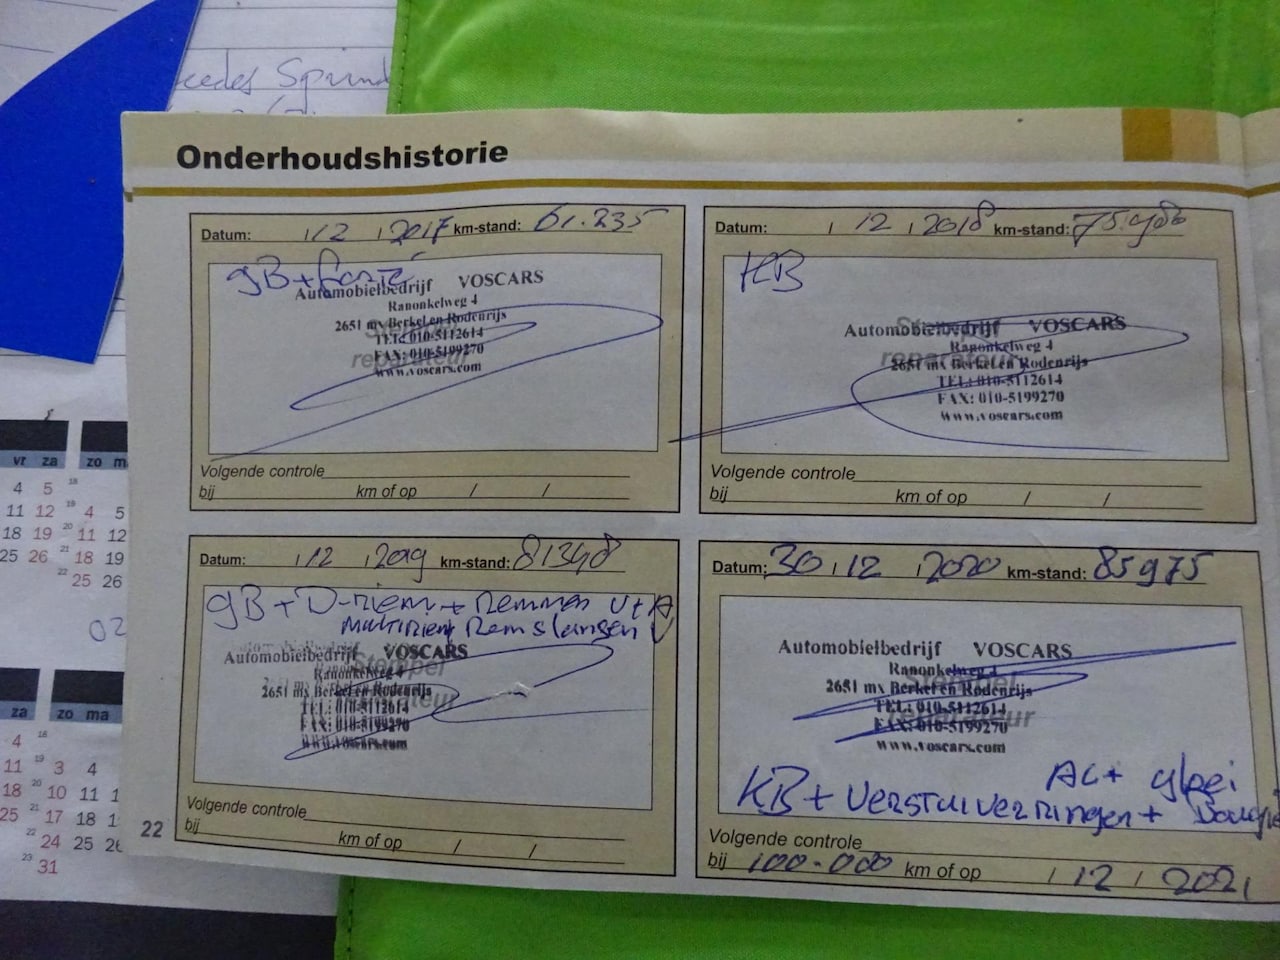 Spund
Onderhoudshistorie
Datum: 12 2017 km-stand: 61.235
gB +
Automobielbedrijf VOSCARS
Ranonkelweg 4
2651 mx Berkel en Rodenrijs
TEL: 010-5112614
FAX: 010-5199270
www.voscars.com
Stempel
reparateur
Volgende controle
bij km of op / /
Datum: 12 2018 km-stand: 75.980
KB
Automobielbedrijf VOSCARS
Ranonkelweg 4
2651 mx Berkel en Rodenrijs
TEL: 010-5112614
FAX: 010-5199270
www.voscars.com
Stempel
reparateur
Volgende controle
bij km of op / /
Datum: 12 2019 km-stand: 81348
gB + D-riem + Remmen V + A
Multiriem Remslangen V
Automobielbedrijf VOSCARS
Ranonkelweg 4
2651 mx Berkel en Rodenrijs
TEL: 010-5112614
FAX: 010-5199270
www.voscars.com
Stempel
reparateur
Volgende controle
bij km of op / /
Datum: 30 12 2020 km-stand: 85975
Automobielbedrijf VOSCARS
Ranonkelweg 4
2651 mx Berkel en Rodenrijs
TEL: 010-5112614
FAX: 010-5199270
www.voscars.com
Stempel
reparateur
AC + gloei
KB + Verstuiverringen +
Volgende controle
bij 100.000 km of op / 12 / 2021
22
vr za
4 5 18
11 12 19
18 19 20
25 26 21
22
zo m
4 5
11 12
18 19
25 26
02
za
4 18
11 19
18 20
25 21
22
23
zo ma
3 4
10 11 1
17 18 1
24 25 26
31